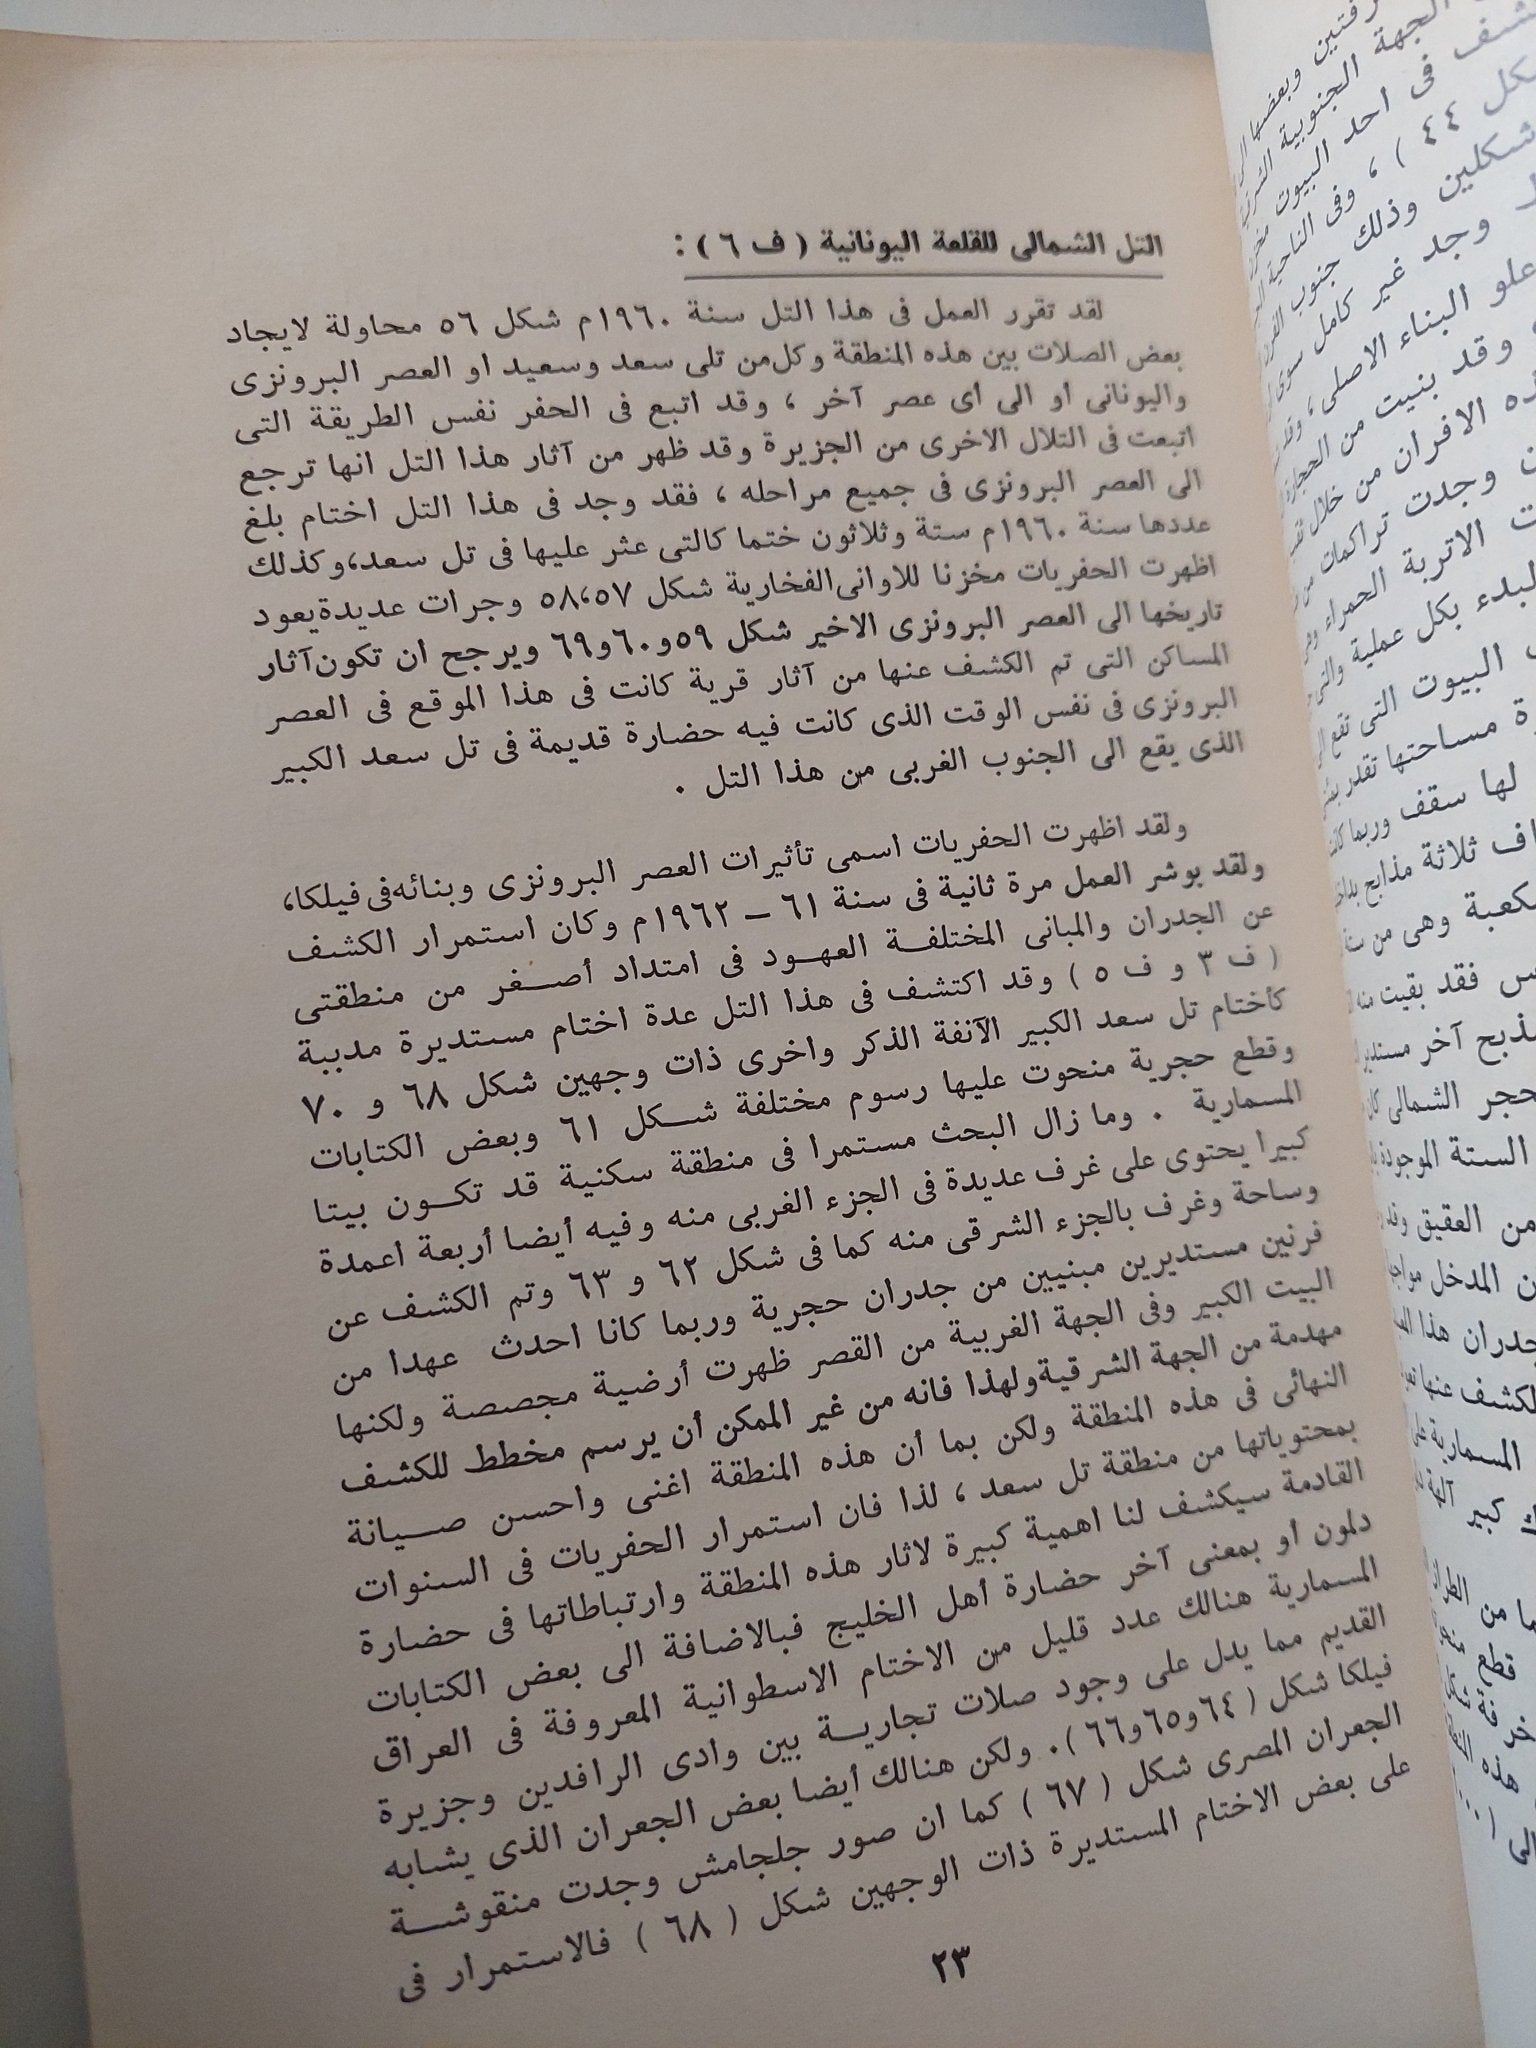 التل الشمالى للقلعة اليونانية ( ف ٦ ) :
لقد تقرر العمل فى هذا التل سنة ١٩٦٠م شكل ٥٦ محاولة لايجاد
بعض الصلات بين هذه المنطقة وكل من تلى سعد وسعيد او العصر البرونزى
واليونانى أو الى أى عصر آخر ، وقد اتبع فى الحفر نفس الطريقة التى
اتبعت فى التلال الاخرى من الجزيرة وقد ظهر من آثار هذا التل انها ترجع
الى العصر البرونزى فى جميع مراحله ، فقد وجد فى هذا التل اختام بلغ
عددها سنة ١٩٦٠م ستة وثلاثون ختما كالتى عثر عليها فى تل سعد، وكذلك
اظهرت الحفريات مخزنا للاوانى الفخارية شكل ٥٨،٥٧ وجرات عديدة يعود
تاريخها الى العصر البرونزى الاخير شكل ٥٩و٦٠و٦٩ ويرجح ان تكون آثار
المساكن التى تم الكشف عنها من آثار قرية كانت فى هذا الموقع فى العصر
البرونزى فى نفس الوقت الذى كانت فيه حضارة قديمة فى تل سعد الكبير
الذى يقع الى الجنوب الغربى من هذا التل .
ولقد اظهرت الحفريات اسمى تأثيرات العصر البرونزى وبنائه فى فيلكا،
ولقد بوشر العمل مرة ثانية فى سنة ٦١ – ١٩٦٢م وكان استمرار الكشف
عن الجدران والمبانى المختلفة العهود فى امتداد أصغر من منطقتى
( ف ٣ و ف ٥ ) وقد اكتشف فى هذا التل عدة اختام مستديرة مدببة
كأختام تل سعد الكبير الآنفة الذكر واخرى ذات وجهين شكل ٦٨ و ٧٠
وقطع حجرية منحوت عليها رسوم مختلفة شكل ٦١ وبعض الكتابات
المسمارية . وما زال البحث مستمرا فى منطقة سكنية قد تكون بيتا
كبيرا يحتوى على غرف عديدة فى الجزء الغربى منه وفيه أيضا أربعة أعمدة
وساحة وغرف بالجزء الشرقى منه كما فى شكل ٦٢ و ٦٣ وتم الكشف عن
فرنين مستديرين مبنيين من جدران حجرية وربما كانا احدث عهدا من
البيت الكبير وفى الجهة الغربية من القصر ظهرت أرضية مجصصة ولكنها
مهدمة من الجهة الشرقية ولهذا فانه من غير الممكن أن يرسم مخطط للكشف
النهائى فى هذه المنطقة ولكن بما أن هذه المنطقة اغنى واحسن صيانة
بمحتوياتها من منطقة تل سعد ، لذا فان استمرار الحفريات فى السنوات
القادمة سيكشف لنا اهمية كبيرة لاثار هذه المنطقة وارتباطاتها فى حضارة
دلمون أو بمعنى آخر حضارة أهل الخليج فبالاضافة الى بعض الكتابات
المسمارية هنالك عدد قليل من الاختام الاسطوانية المعروفة فى العراق
القديم مما يدل على وجود صلات تجارية بين وادى الرافدين وجزيرة
فيلكا شكل ( ٦٤و٦٥و٦٦ ). ولكن هنالك أيضا بعض الجعران الذى يشابه
الجعران المصرى شكل ( ٦٧ ) كما ان صور جلجامش وجدت منقوشة
على بعض الاختام المستديرة ذات الوجهين شكل ( ٦٨ ) فالاستمرار فى
٢٣